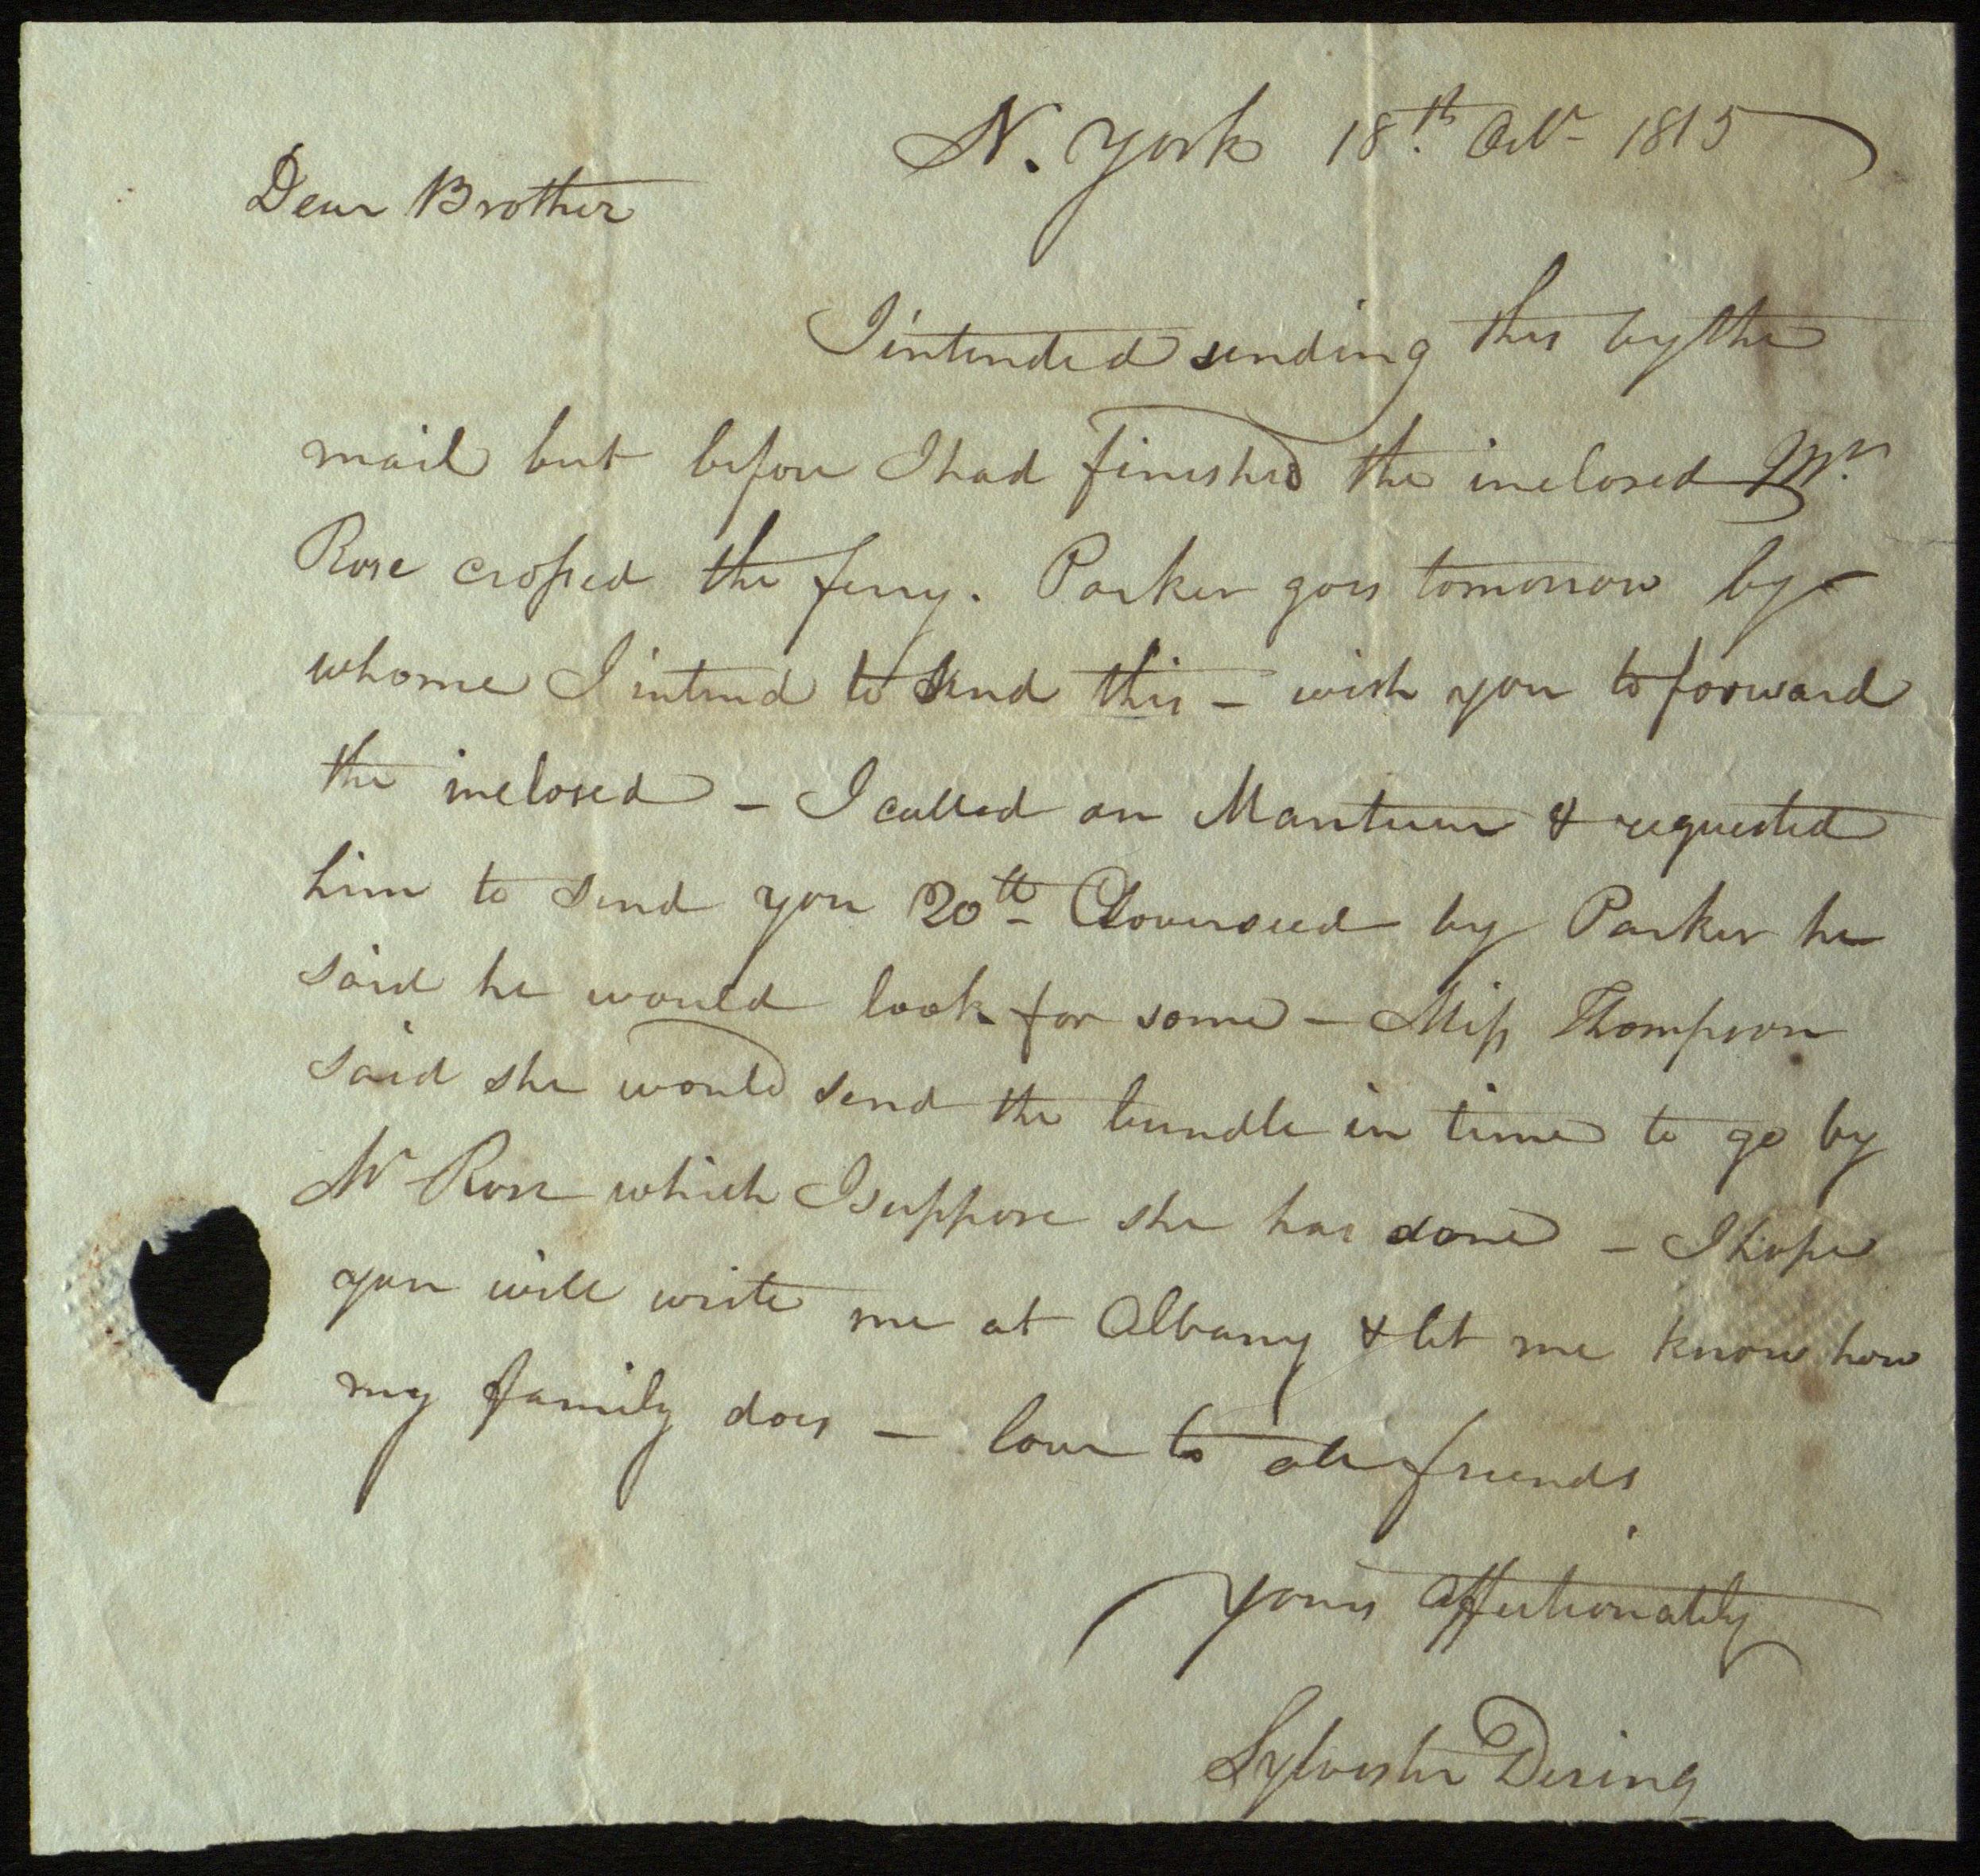 N. York 18th. Octr 1815
Dear Brother
I intended sending this by the
mail but before I had finished the inclosed Mr.
Rose crossed the ferry. Parker goes tomorrow by
whome I intend to send this – wish you to forward
the inclosed – I called on & requested
him to send you 20 lb Cloverseed by Parker he
said he would look for some – Miss Thompson
said she would send the bundle in time to go by
Mr Rose which I suppose she has done – I hope
you will write me at Albany & let me know how
my family does – love to all friends
yours affectionately
Sylvester Dering